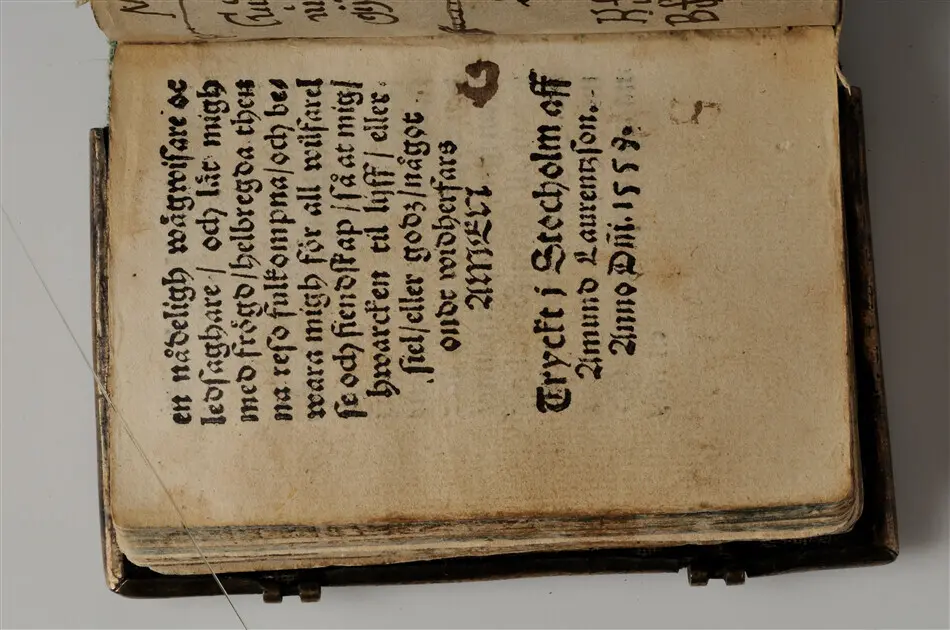 en nådeligh wågwisare oc
ledsaghare / och låt migh
med frögd/helbregda thens
na reso fulkompna/och bes
wara migh för all wilfarel
se och fiendskap /så at mig/
hwarcken til lijff / eller
siel/eller godz/något
ondt widherfars
AMEN
Tryckt i Stocholm aff
Amund Laurentzson.
Anno Dñi. 1559.